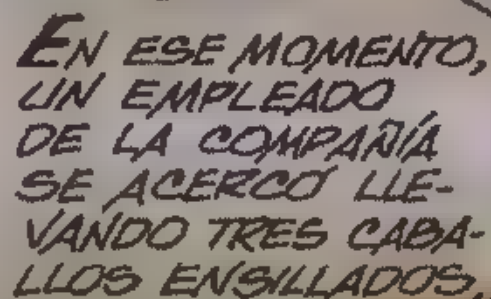 EN ESE MOMENTO,
UN EMPLEADO
DE LA COMPAÑÍA
SE ACERCÓ LLE-
VANDO TRES CABA-
LLOS ENSILLADOS,